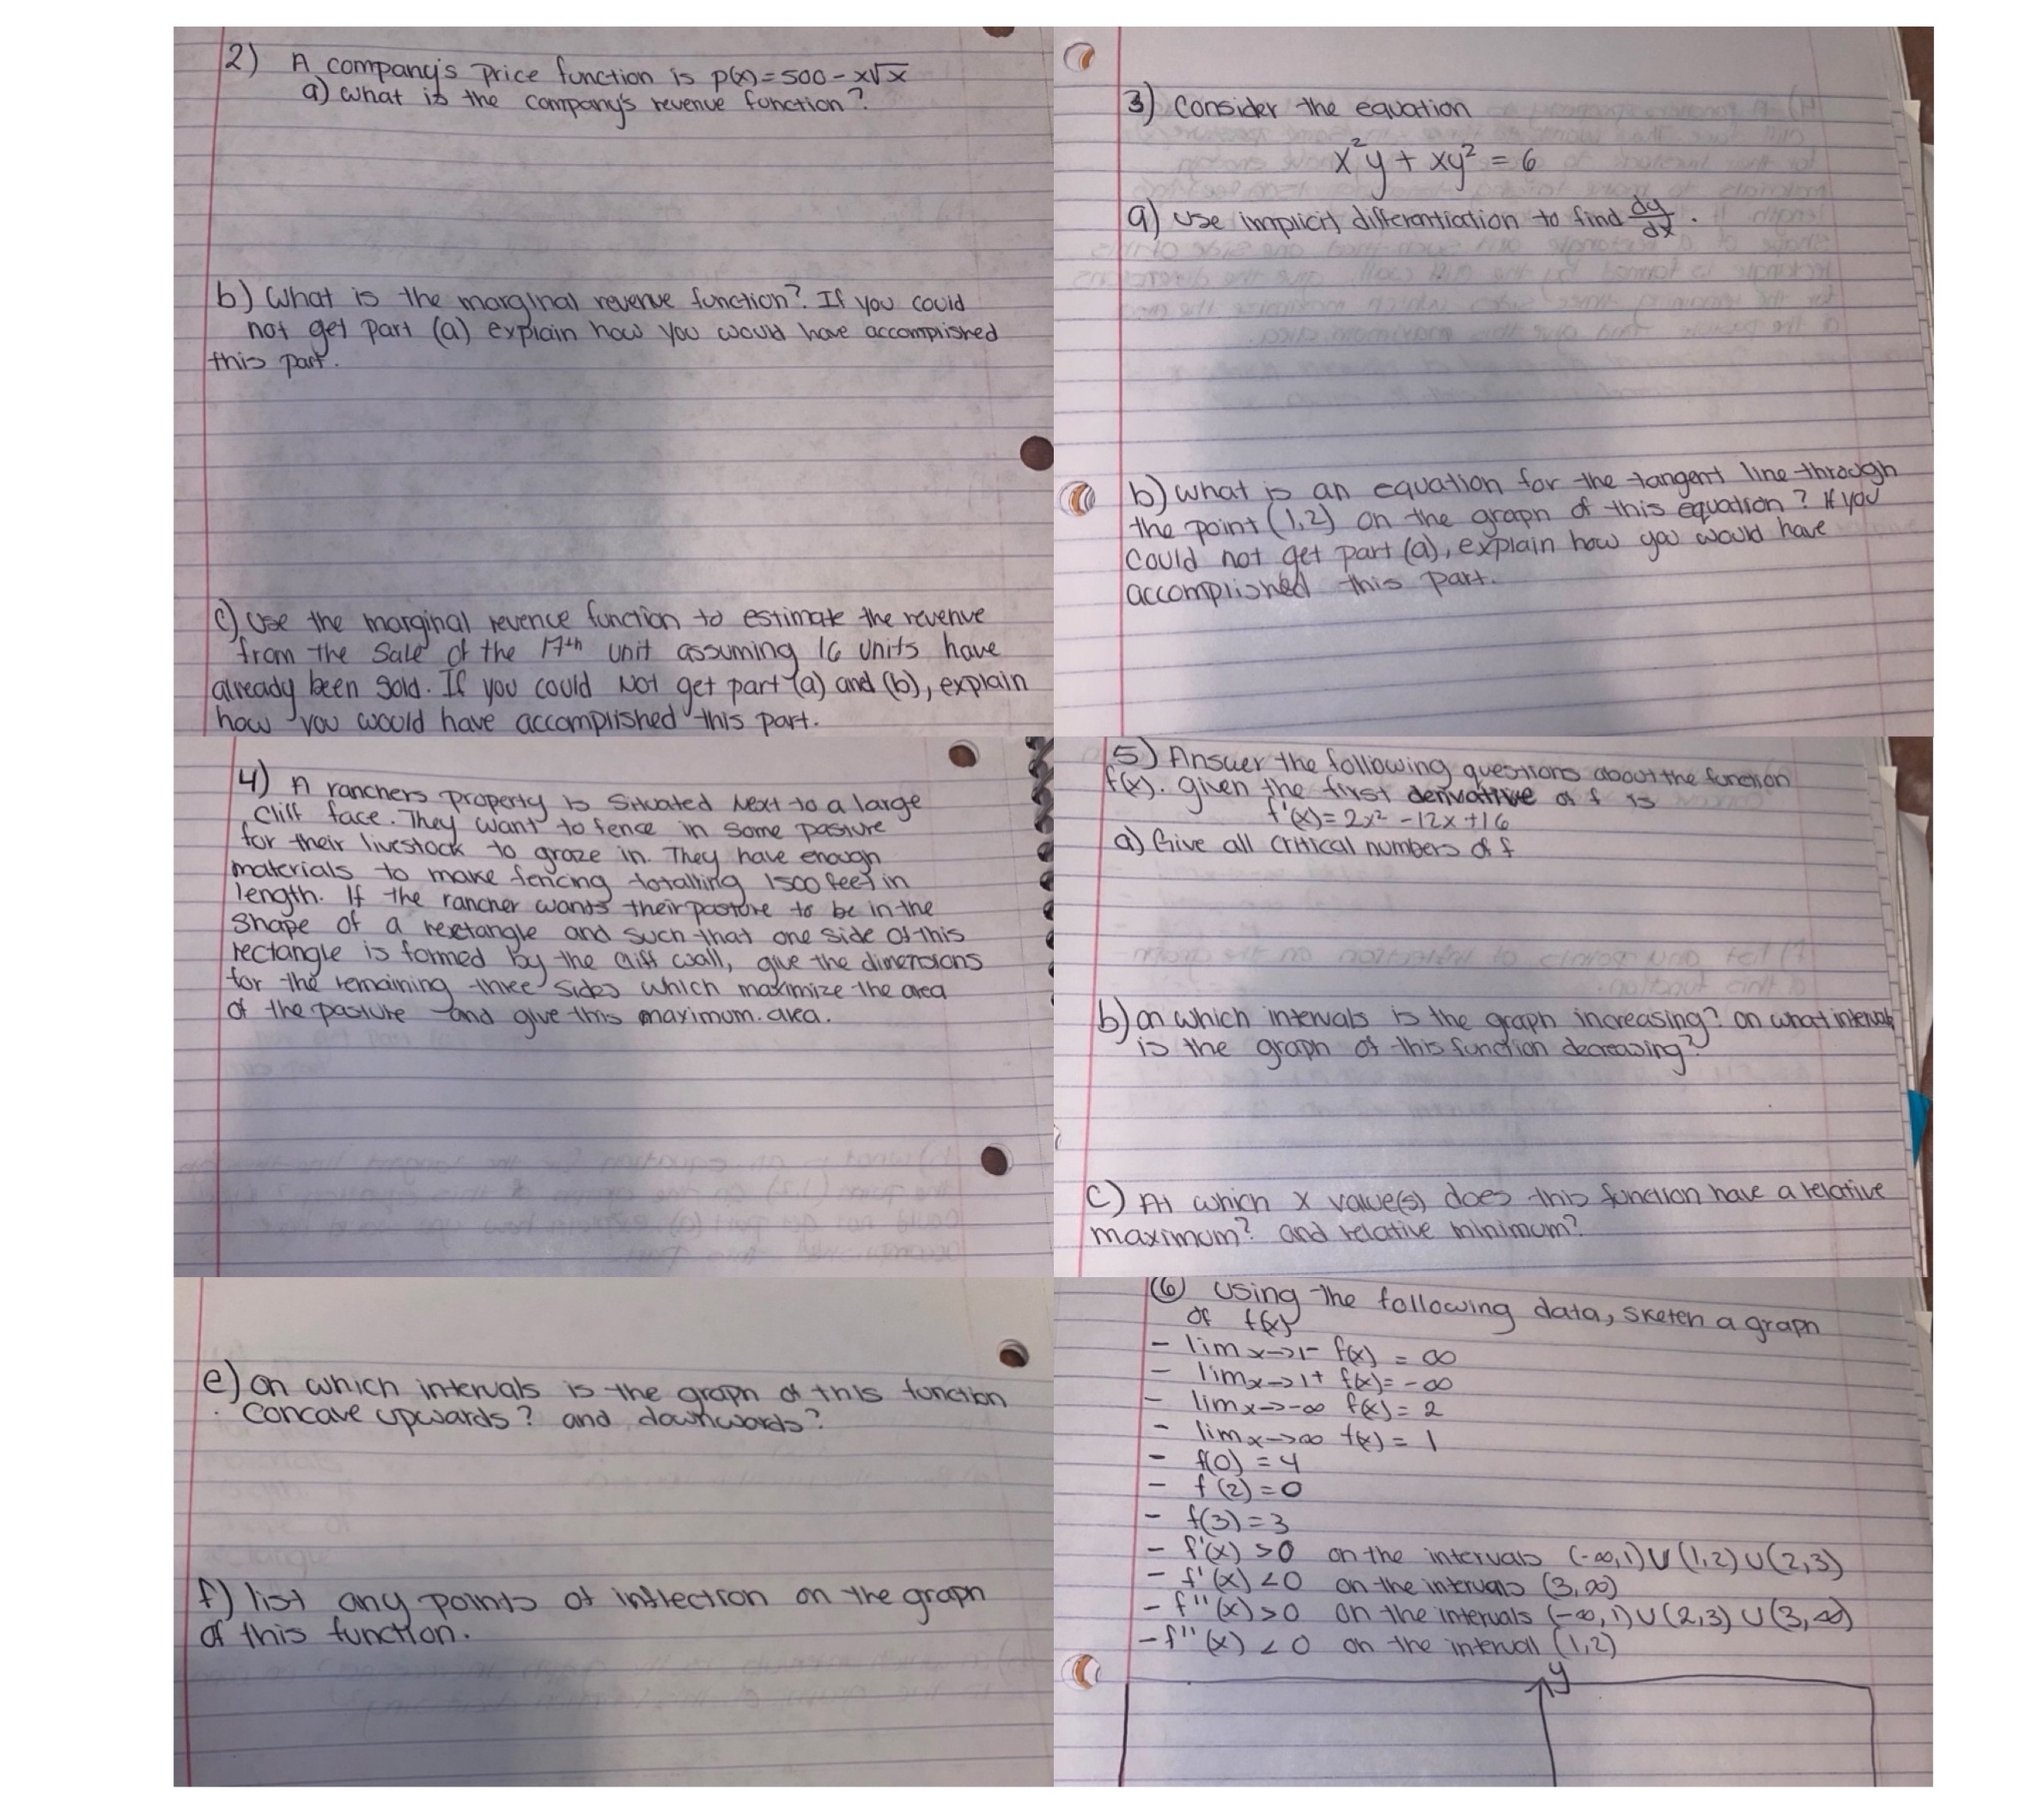 2) A company's price function is p(x) = 500 - x√x
a) what is the company's revenue function?
b) What is the marginal revenue function? If you could
not get part (a) explain how you would have accomplished
this part.
c) Use the marginal revence function to estimate the revenve
from the sale of the 17th unit assuming 16 units have
already been sold. If you could Not get part (a) and (b), explain
how you would have accomplished this part.
3) Consider the equation
x²y + xy² = 6
a) use implicit differentiation to find dy/dx.
b) what is an equation for the tangent line through
the point (1,2) on the graph of this equation? If you
could not get part (a), explain how you would have
accomplished this part.
4) A ranchers property is situated Next to a large
cliff face. They want to fence in some pasture
for their livestock to graze in. They have enough
materials to make fencing totalling 1500 feet in
length. If the rancher wants their pasture to be in the
shape of a rectangle and such that one side of this
rectangle is formed by the cliff wall, give the dimensions
for the remaining three sides which maximize the area
of the pasture and give this maximum. area.
5) Answer the following questions about the function
f(x). given the first derivative of f is
f'(x) = 2x² - 12x + 16
a) Give all critical numbers of f
b) on which intervals is the graph increasing? on what intervals
is the graph of this function decreasing?
c) At which x value(s) does this function have a relative
maximum? and relative minimum?
e) on which intervals is the graph of this function
concave upwards? and downwards?
f) list any points of inflection on the graph
of this function.
6 Using the following data, sketch a graph
of f(x)
- lim x→1- f(x) = ∞
- lim x→1+ f(x) = -∞
- lim x→-∞ f(x) = 2
- lim x→∞ f(x) = 1
- f(0) = 4
- f(2) = 0
- f(3) = 3
- f'(x) > 0 on the intervals (-∞,1) U (1,2) U (2,3)
- f'(x) < 0 on the intervals (3,∞)
- f''(x) > 0 on the intervals (-∞,1) U (2,3) U (3,∞)
- f''(x) < 0 on the intervall (1,2)
y